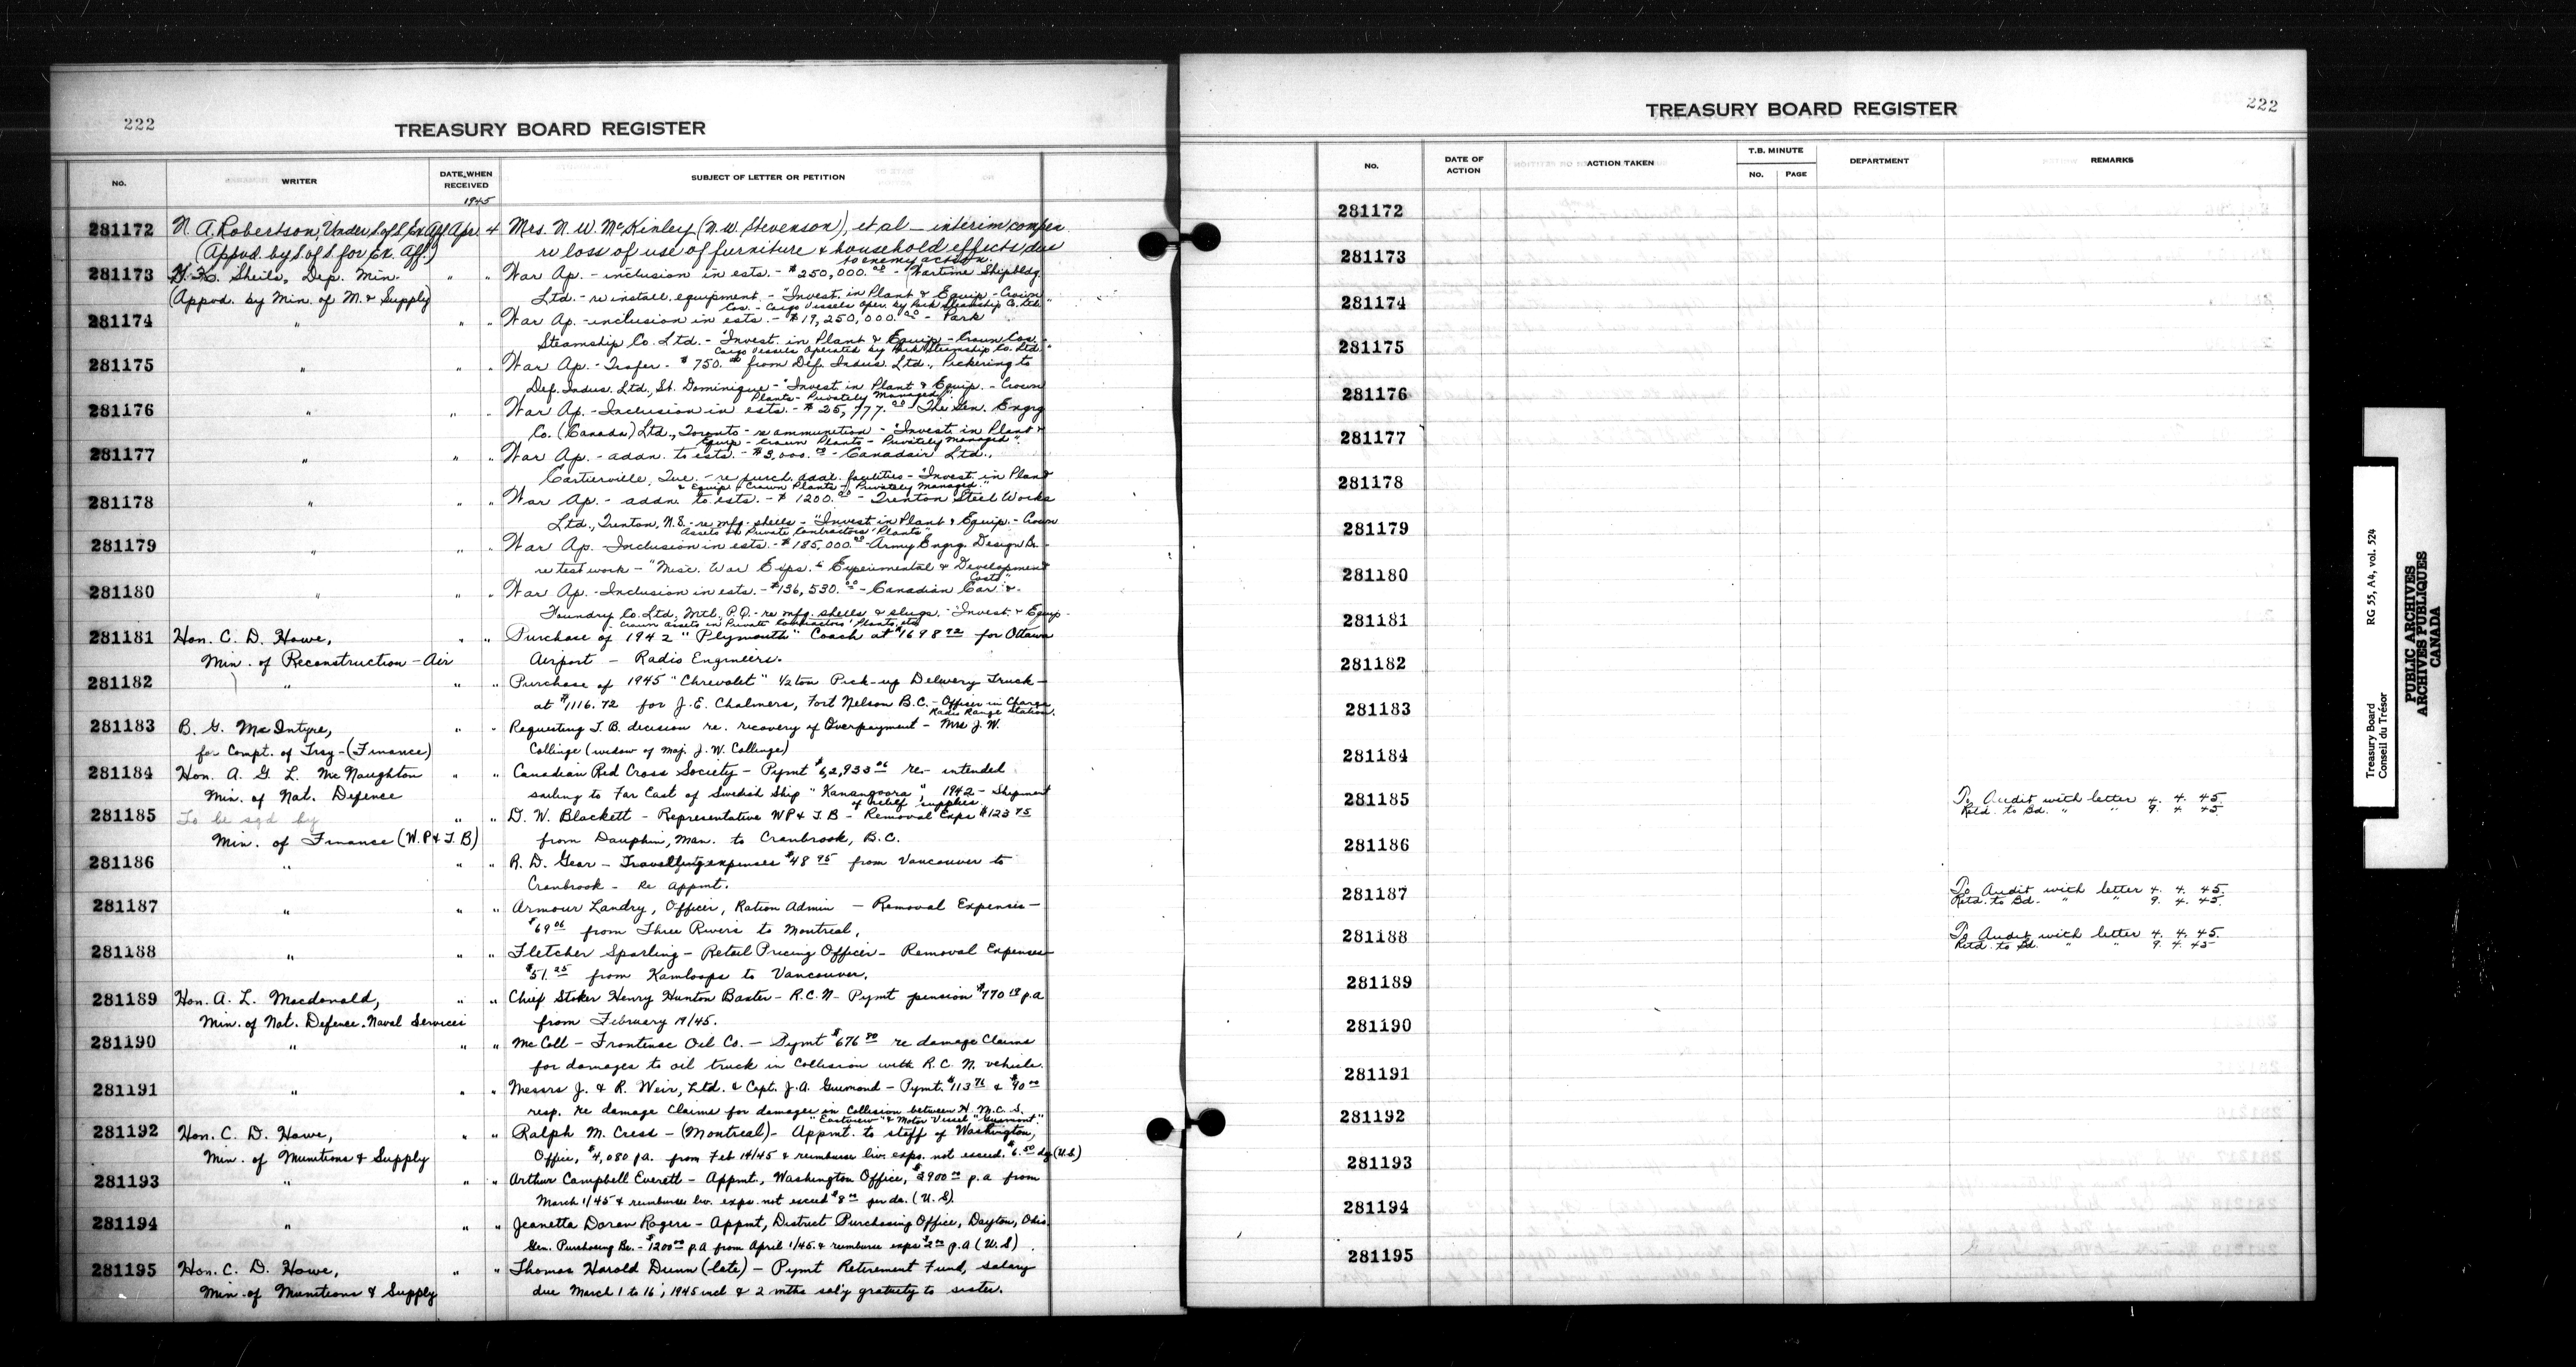 222
TREASURY BOARD REGISTER
NO.
WRITER
DATE WHEN RECEIVED
SUBJECT OF LETTER OR PETITION
1945
281172 N. A. Robertson, Under S. of S. Ex. Aff. Apr. 4 Mrs. N. W. McKinley (N. W. Stevenson), et al – interim compen
(Appvd. by S. of S. for Ex. Aff.) re loss of use of furniture & household effects due
to enemy action.
281173 Sheils, Dep. Min. " " War Ap. - inclusion in ests. - $250,000.00 - Wartime Shipbldg.
(Appvd. by Min. of M. & Supply) Ltd. - re install. equipment - "Invest. in Plant & Equip - Crown
Cos. - Cargo Vessels Oper. by Park Steamship Co. Ltd."
281174 " " " War Ap. - inclusion in ests. - $19,250,000.00 - Park
Steamship Co. Ltd. - "Invest. in Plant & Equip - Crown Cos. -
Cargo Vessels Operated by Park Steamship Co. Ltd."
281175 " " " War Ap. - Trsfer - $750.00 from Def. Indus. Ltd., Pickering to
Def. Indus. Ltd., St. Dominique - "Invest. in Plant & Equip. - Crown
Plants - Privately Managed".
281176 " " " War Ap. - Inclusion in ests. - $25,777.00 The Gen. Engrg
Co. (Canada) Ltd., Toronto - re ammunition - "Invest. in Plant &
Equip - Crown Plants - Privately Managed".
281177 " " " War Ap. - addn. to ests. - $3,000.00 - Canadair Ltd.,
Cartierville, Que. - re purch. addl. facilities - "Invest. in Plant
& Equip. Crown Plants - Privately Managed."
281178 " " " War Ap. - addn. to ests. - $1200.00 - Trenton Steel Works
Ltd., Trenton, N.S. - re mfg. shells - "Invest. in Plant & Equip. - Crown
Assets in Private Contractors' Plants"
281179 " " " War Ap. - Inclusion in ests. - $185,000.00 - Army Engrg. Design Br. -
re test work - "Misc. War Exps. - Experimental & Development
Costs".
281180 " " " War Ap. - Inclusion in ests. - $136,530.00 - Canadian Car &
Foundry Co. Ltd., Mtl., P.Q. - re mfg. shells & slugs. - "Invest. & Equip -
Crown assets in Private Contractors' Plants, etc
281181 Hon. C. D. Howe, " " Purchase of 1942 "Plymouth" Coach at $1698.72 for Ottawa
Min. of Reconstruction - Air Airport - Radio Engineers.
281182 " " " Purchase of 1945 "Chrevolet" 1/2 ton Pick-up Delivery Truck -
at $1116.72 for J. E. Chalmers, Fort Nelson B.C. - Officer in Charge
Radio Range Station.
281183 B. G. McIntyre, " " Requesting T. B. decision re. recovery of Overpayment - Mrs J. W.
for Compt. of Trsy - (Finance) Collinge (widow of Maj. J. W. Collinge)
281184 Hon. A. G. L. McNaughton " " Canadian Red Cross Society - Pymt $62,933.06 re - intended
Min. of Nat. Defence sailing to Far East of Swedish Ship "Kanangoora", 1942 - Shipment
of relief supplies.
281185 To be sgd by " " D. W. Blackett - Representative WP & T.B - Removal Exps $123.75
Min. of Finance (W.P & T. B) from Dauphin, Man. to Cranbrook, B.C.
281186 " " " R. D. Gear - Travelling expenses $48.95 from Vancouver to
Cranbrook - Re Appmt.
281187 " " " Armour Landry, Officer, Ration Admin - Removal Expenses -
$69.06 from Three Rivers to Montreal.
281188 " " " Fletcher Sparling - Retail Pricing Officer - Removal Expenses
$51.25 from Kamloops to Vancouver.
281189 Hon. A. L. Macdonald, " " Chief Stoker Henry Hunton Baxter - R.C.N - Pymt pension $770.19 p.a
Min. of Nat. Defence. Naval Services from February 19/45.
281190 " " " McColl - Frontenac Oil Co. - Pymt $676.80 re damage Claims
for damages to oil truck in Collision with R.C.N. vehicle.
281191 " " " Messrs J. & R. Weir, Ltd. & Capt. J. A. Guimond - Pymt. $113.76 & $90.00
resp. re damage Claims for damages in Collision between H.M.C.S.
"Eastview" & Motor Vessel "Guimont".
281192 Hon. C. D. Howe, " " Ralph M. Cress - (Montreal) - Appmt. to staff of Washington,
Min. of Munitions & Supply Office, $4,080 p.a. from Feb 14/45 & reimburse liv. exps. not exceed. $6.50 dy (U.S)
281193 " " " Arthur Campbell Everett - Appmt., Washington Office, $3900.00 p.a from
March 1/45 & reimburse liv. exps. not exceed $8.00 per da. (U.S).
281194 " " " Jeanetta Doran Rogers - Appmt, District Purchasing Office, Dayton, Ohio.
Gen. Purchasing Br. - $1200.00 p.a from April 1/45 & reimburse exps $2.00 p.a (U.S).
281195 Hon. C. D. Howe, " " Thomas Harold Dunn (late) - Pymt Retirement Fund, salary
Min. of Munitions & Supply due March 1 to 16, 1945 incl & 2 mths sal'y gratuity to sister.
222
TREASURY BOARD REGISTER
NO.
DATE OF ACTION
ACTION TAKEN
T.B. MINUTE
NO. PAGE
DEPARTMENT
REMARKS
281172
281173
281174
281175
281176
281177
281178
281179
281180
281181
281182
281183
281184
281185 To Audit with letter 4. 4. 45.
Retd. to Bd. " " 9. 4. 45.
281186
281187 To Audit with letter 4. 4. 45.
Retd. to Bd. " " 9. 4. 45.
281188 To Audit with letter 4. 4. 45.
Retd. to Bd. " " 9. 4. 45
281189
281190
281191
281192
281193
281194
281195
Treasury Board RG 55, A4, vol. 524
Conseil du Trésor
PUBLIC ARCHIVES
ARCHIVES PUBLIQUES
CANADA